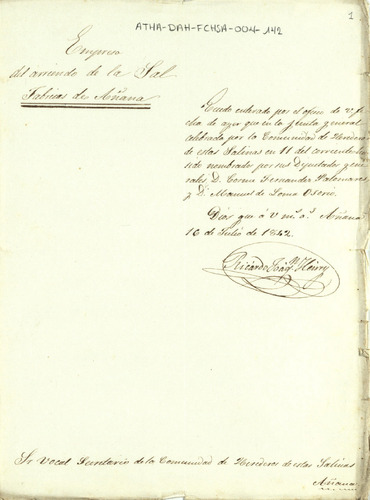 1
ATHA-DAH-FCHSA-004-142
Empresa
del arriendo de la Sal
Fabricas de Añana
Quedo enterado por el oficio de V. fe
cha de ayer que en la Junta general
celebrada por la Comunidad de Herederos
de estas Salinas en 11 del corriente han
sido nombrados por sus Diputados gene
rales D. Cosme Fernandez Palomares
y D. Manuel de Loma Osorio.
Dios gue á V ms. as. Añana
16 de Julio de 1842.
Ricardo Joaqn
Sr Vocal Secretario de la Comunidad de Herederos de estas Salinas
Añana